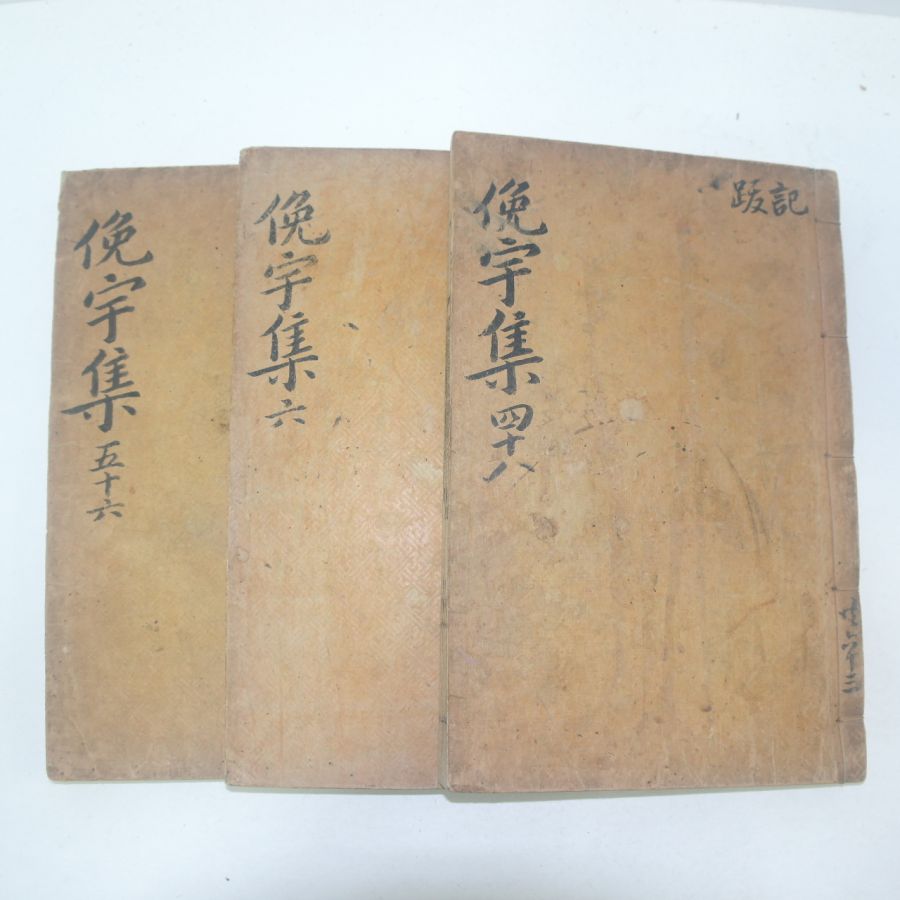 記跋
俛宇集 四十八
共六十三
俛宇集 六
俛宇集 五十六